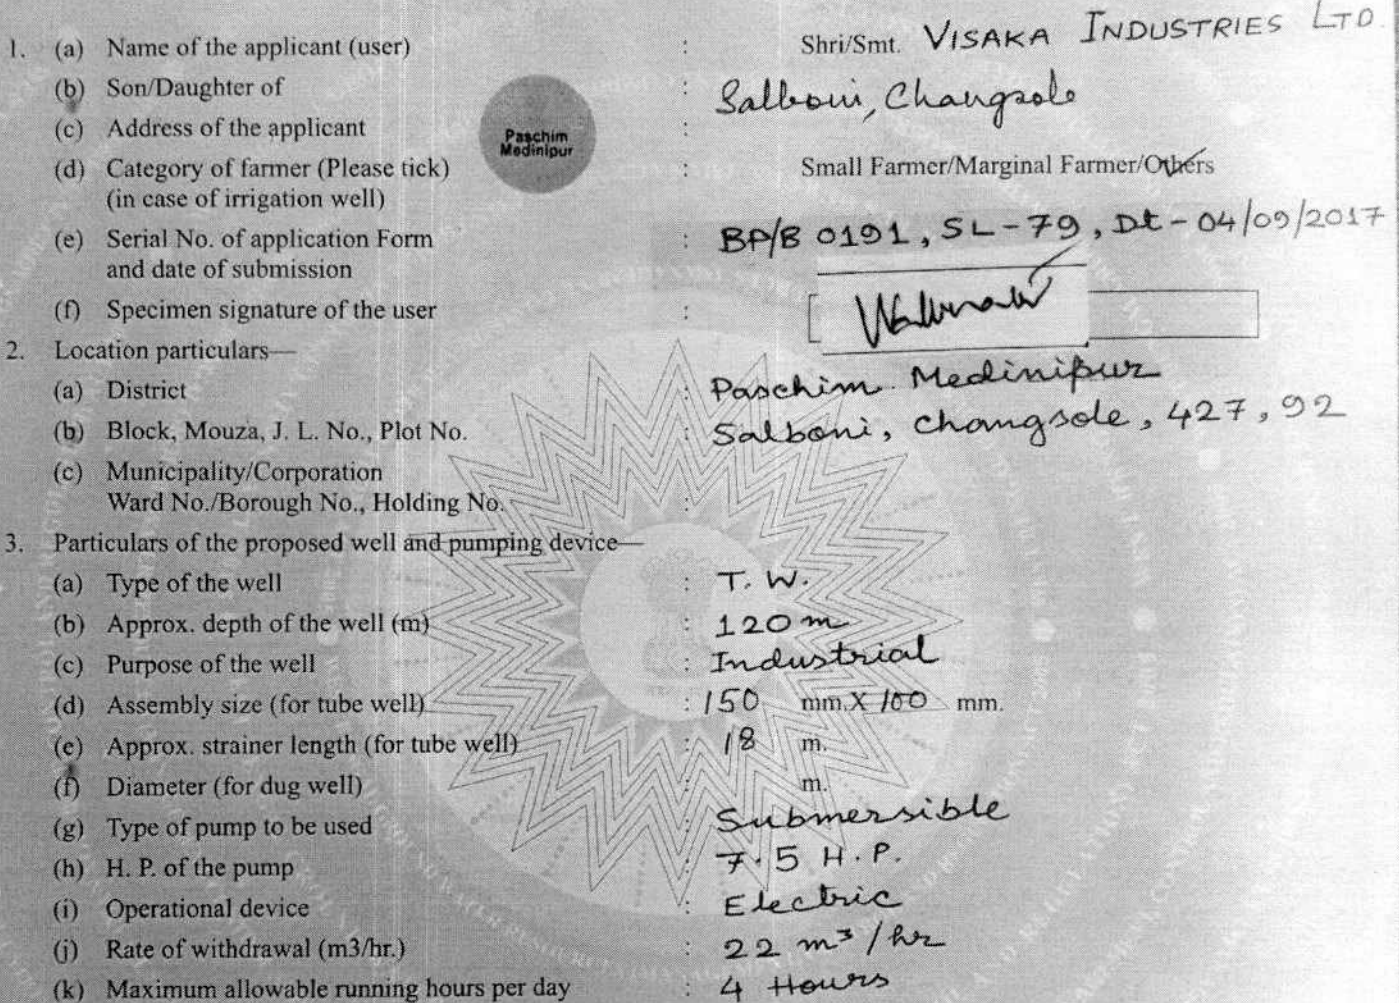 1. (a) Name of the applicant (user) : Shri/Smt. VISAKA INDUSTRIES LTD.
(b) Son/Daughter of :
Salboni, Changsole
(c) Address of the applicant :
Paschim
Medinipur
(d) Category of farmer (Please tick) : Small Farmer/Marginal Farmer/Others
(in case of irrigation well)
(e) Serial No. of application Form : BP/B 0191, SL-79, Dt - 04/09/2017
and date of submission
(f) Specimen signature of the user :
2. Location particulars—
(a) District : Paschim Medinipur
(b) Block, Mouza, J. L. No., Plot No. : Salboni, Changsole, 427, 92
(c) Municipality/Corporation
Ward No./Borough No., Holding No. :
3. Particulars of the proposed well and pumping device—
(a) Type of the well : T. W.
(b) Approx. depth of the well (m) : 120 m
(c) Purpose of the well : Industrial
(d) Assembly size (for tube well) : 150 mm.X 100 mm.
(e) Approx. strainer length (for tube well) : 18 m.
(f) Diameter (for dug well) : m.
(g) Type of pump to be used : Submersible
(h) H. P. of the pump : 7.5 H.P.
(i) Operational device : Electric
(j) Rate of withdrawal (m3/hr.) : 22 m³/hr
(k) Maximum allowable running hours per day : 4 Hours